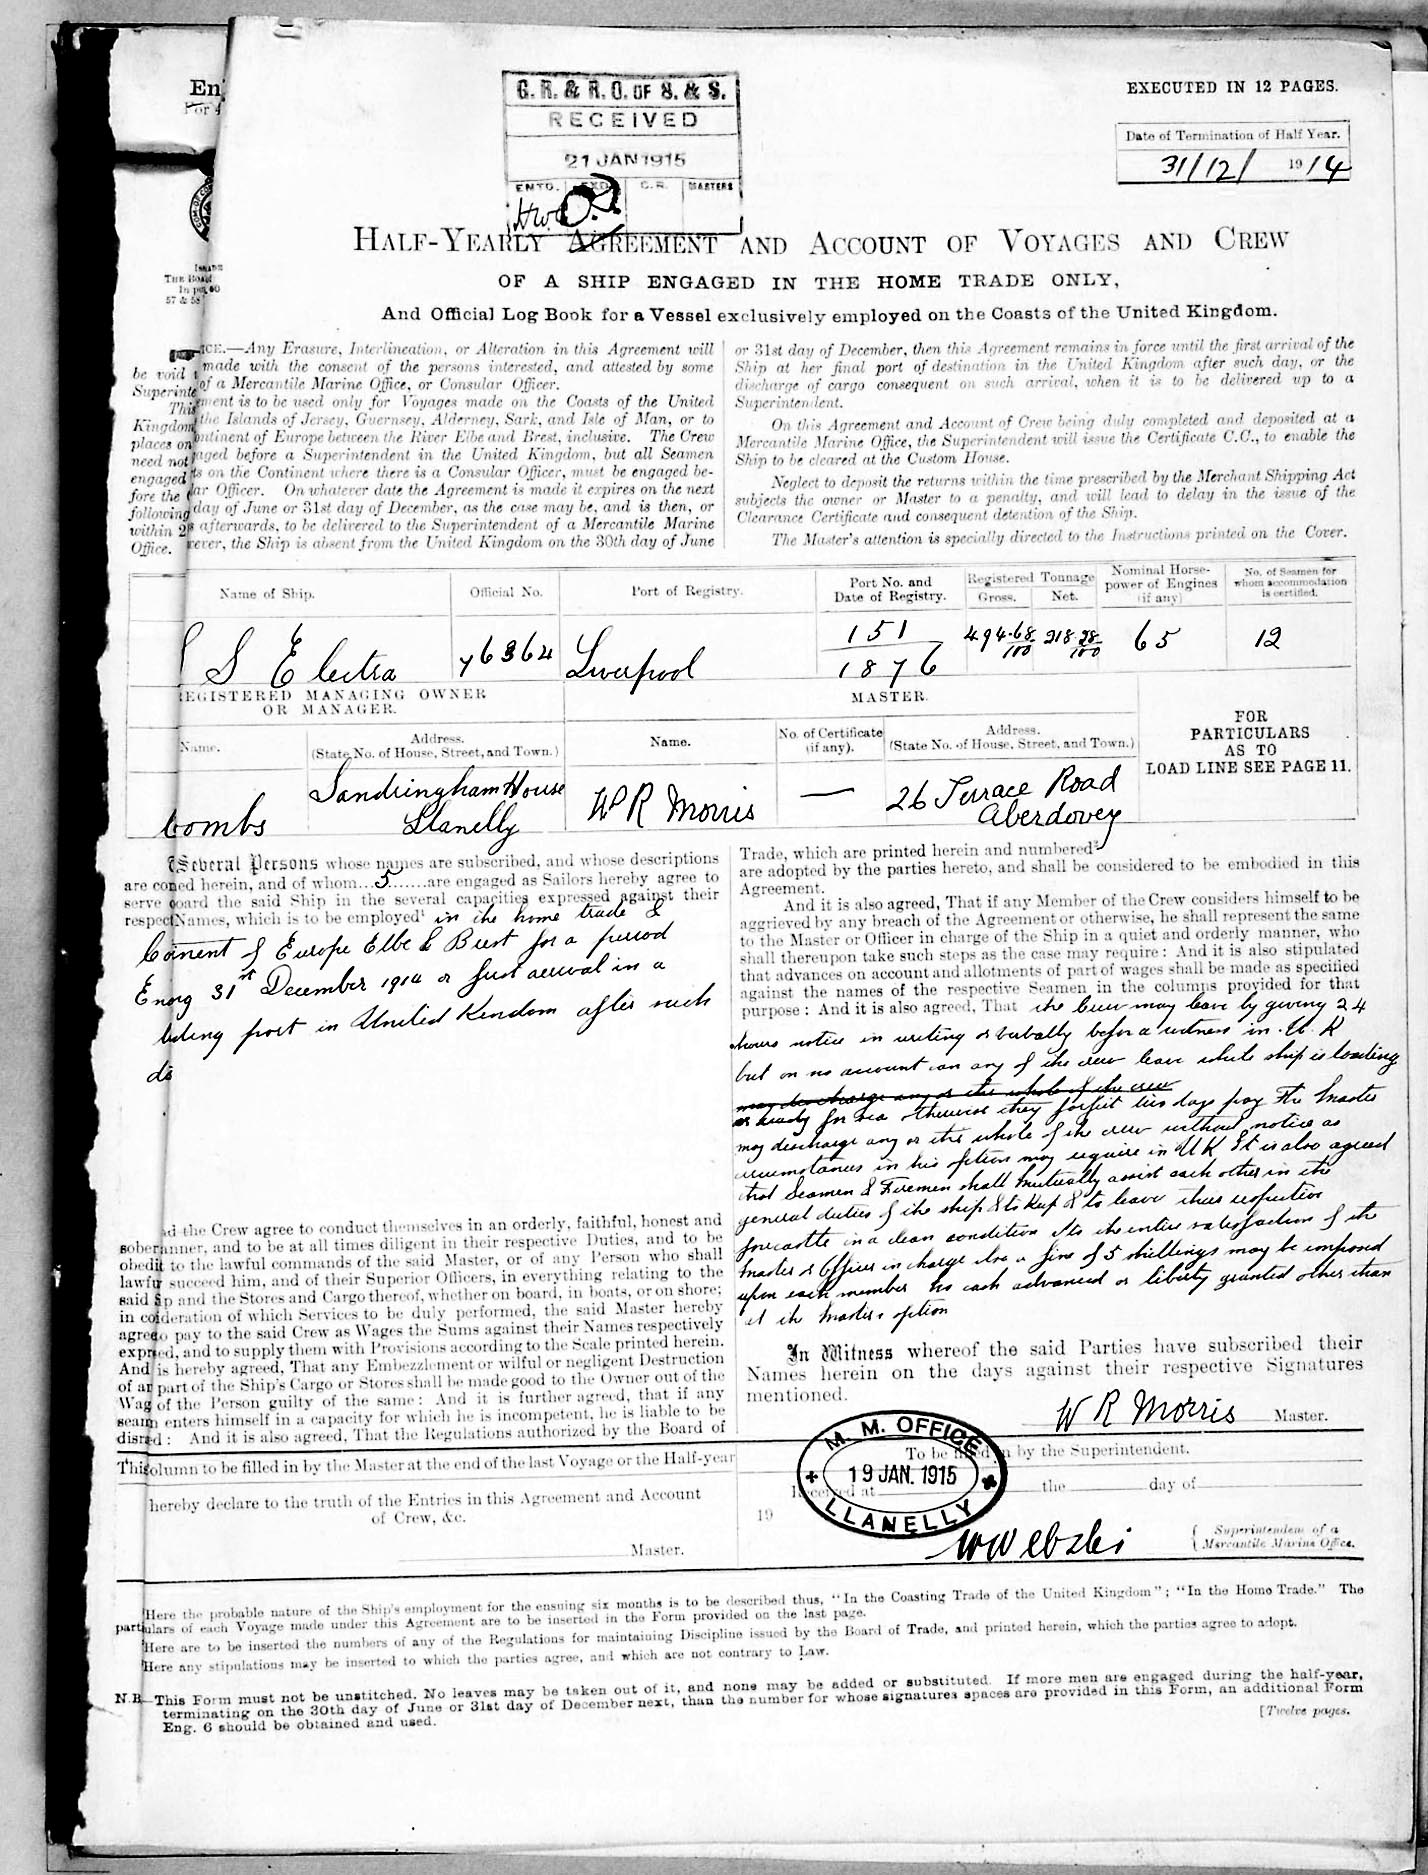 En
For 4
G. R. & R. O. OF S. & S.
RECEIVED
21 JAN 1915
ENTD. EXD. C.R. MASTERS
EXECUTED IN 12 PAGES.
Date of Termination of Half Year.
31/12/ 1914
HALF-YEARLY AGREEMENT AND ACCOUNT OF VOYAGES AND CREW
OF A SHIP ENGAGED IN THE HOME TRADE ONLY,
And Official Log Book for a Vessel exclusively employed on the Coasts of the United Kingdom.
ICE.—Any Erasure, Interlineation, or Alteration in this Agreement will
be void made with the consent of the persons interested, and attested by some
Superinte of a Mercantile Marine Office, or Consular Officer.
This ment is to be used only for Voyages made on the Coasts of the United
Kingdom the Islands of Jersey, Guernsey, Alderney, Sark, and Isle of Man, or to
places on ntinent of Europe between the River Elbe and Brest, inclusive. The Crew
need not aged before a Superintendent in the United Kingdom, but all Seamen
engaged ts on the Continent where there is a Consular Officer, must be engaged be-
fore the ar Officer. On whatever date the Agreement is made it expires on the next
following day of June or 31st day of December, as the case may be, and is then, or
within 2 s afterwards, to be delivered to the Superintendent of a Mercantile Marine
Office. ever, the Ship is absent from the United Kingdom on the 30th day of June
or 31st day of December, then this Agreement remains in force until the first arrival of the
Ship at her final port of destination in the United Kingdom after such day, or the
discharge of cargo consequent on such arrival, when it is to be delivered up to a
Superintendent.
On this Agreement and Account of Crew being duly completed and deposited at a
Mercantile Marine Office, the Superintendent will issue the Certificate C.C., to enable the
Ship to be cleared at the Custom House.
Neglect to deposit the returns within the time prescribed by the Merchant Shipping Act
subjects the owner or Master to a penalty, and will lead to delay in the issue of the
Clearance Certificate and consequent detention of the Ship.
The Master's attention is specially directed to the Instructions printed on the Cover.
Name of Ship. Official No. Port of Registry. Port No. and Date of Registry. Registered Tonnage Gross. Net. Nominal Horse-power of Engines (if any) No. of Seamen for whom accommodation is certified.
S Electra 76364 Liverpool 151/1876 494.68/100 218.28/100 65 12
REGISTERED MANAGING OWNER
OR MANAGER.
MASTER.
Name. Address. (State No. of House, Street, and Town.) Name. No. of Certificate (if any). Address. (State No. of House, Street, and Town.)
FOR
PARTICULARS
AS TO
LOAD LINE SEE PAGE 11.
Combs Sandringham House Llanelly W R Morris — 26 Terrace Road Aberdovey
Several Persons whose names are subscribed, and whose descriptions
are con ed herein, and of whom 5 are engaged as Sailors hereby agree to
serve oard the said Ship in the several capacities expressed against their
respect Names, which is to be employed¹ in the home trade &
Coinent of Europe Elbe to Brest for a period
Enorg 31st December 1914 or first arrival in a
port in United Kendom after such
Trade, which are printed herein and numbered²
are adopted by the parties hereto, and shall be considered to be embodied in this
Agreement.
And it is also agreed, That if any Member of the Crew considers himself to be
aggrieved by any breach of the Agreement or otherwise, he shall represent the same
to the Master or Officer in charge of the Ship in a quiet and orderly manner, who
shall thereupon take such steps as the case may require: And it is also stipulated
that advances on account and allotments of part of wages shall be made as specified
against the names of the respective Seamen in the columns provided for that
purpose: And it is also agreed, That the Crew may leave by giving 24
hours notice in writing or verbally before a witness in U.K
but on no account can any of the crew leave while ship is loading
may discharge any or the whole of the crew
or ready for sea otherwise they forfeit two days pay The Master
may discharge any or the whole of the crew without notice as
circumstances in his option may require in U K It is also agreed
that Seamen & Firemen shall mutually assist each other in the
general duties of the ship & to keep & to leave their respective
forecastle in a clean condition to the entire satisfaction of the
Master or Officer in charge a fine of 5 shillings may be imposed
upon each member No cash advanced or liberty granted other than
at the Masters option
nd the Crew agree to conduct themselves in an orderly, faithful, honest and
sober anner, and to be at all times diligent in their respective Duties, and to be
obedit to the lawful commands of the said Master, or of any Person who shall
lawfu succeed him, and of their Superior Officers, in everything relating to the
said Sp and the Stores and Cargo thereof, whether on board, in boats, or on shore;
in coideration of which Services to be duly performed, the said Master hereby
agreeo pay to the said Crew as Wages the Sums against their Names respectively
expred, and to supply them with Provisions according to the Scale printed herein.
And is hereby agreed, That any Embezzlement or wilful or negligent Destruction
of ar part of the Ship's Cargo or Stores shall be made good to the Owner out of the
Wag of the Person guilty of the same: And it is further agreed, that if any
seam enters himself in a capacity for which he is incompetent, he is liable to be
disred: And it is also agreed, That the Regulations authorized by the Board of
In Witness whereof the said Parties have subscribed their
Names herein on the days against their respective Signatures
mentioned.
W R Morris Master.
This column to be filled in by the Master at the end of the last Voyage or the Half-year
hereby declare to the truth of the Entries in this Agreement and Account
of Crew, &c.
Master.
To be filled in by the Superintendent.
Received at the day of
19
M. M. OFFICE
19 JAN. 1915
LLANELLY
Superintendent of a
Mercantile Marine Office.
Here the probable nature of the Ship's employment for the ensuing six months is to be described thus, "In the Coasting Trade of the United Kingdom"; "In the Home Trade." The
partulars of each Voyage made under this Agreement are to be inserted in the Form provided on the last page.
Here are to be inserted the numbers of any of the Regulations for maintaining Discipline issued by the Board of Trade, and printed herein, which the parties agree to adopt.
Here any stipulations may be inserted to which the parties agree, and which are not contrary to Law.
N.B.—This Form must not be unstitched. No leaves may be taken out of it, and none may be added or substituted. If more men are engaged during the half-year,
terminating on the 30th day of June or 31st day of December next, than the number for whose signatures spaces are provided in this Form, an additional Form
Eng. 6 should be obtained and used.
[Twelve pages.